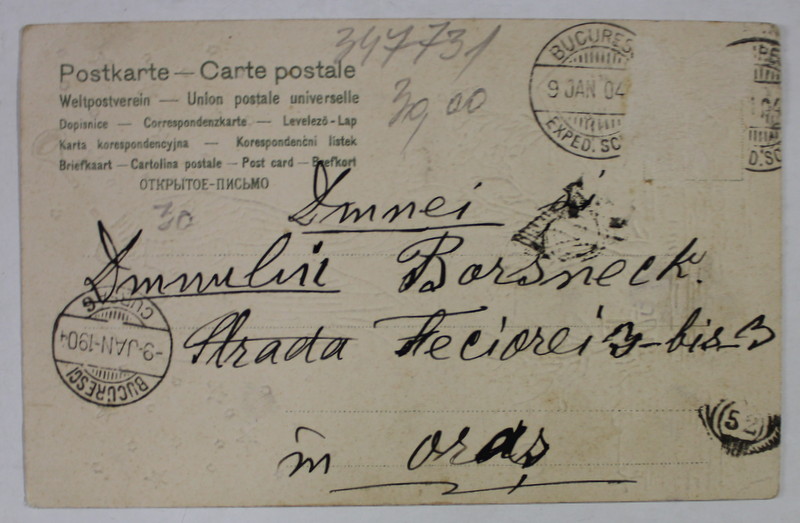 347731
Postkarte — Carte postale
Weltpostverein — Union postale universelle
30,00
Dopisnice — Correspondenzkarte — Levelező-Lap
Karta korespondencyjna — Korespondenční listek
Briefkaart — Cartolina postale — Post card — Brefkort
ОТКРЫТОЕ-ПИСЬМО
30
BUCURES
9 JAN 04
EXPED. SC
04
D. SC
Dmnei si
Dmnului Borsneck.
Strada Feciorei 3-bis-3
BUCURESCI
-9.JAN-1904
52
in oraș